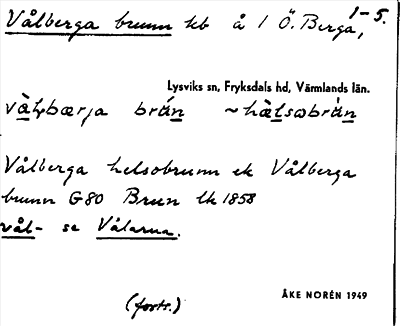 Vålberga brunn kb å 1 Ö. Berga, 1-5.
Lysviks sn, Fryksdals hd, Värmlands län.
brún ~ hàlsobrún
Vålberga helsobrunn ek Vålberga
brunn G80 Brun lk 1858
vål- se Vålarna.
(forts.)
ÅKE NORÉN 1949